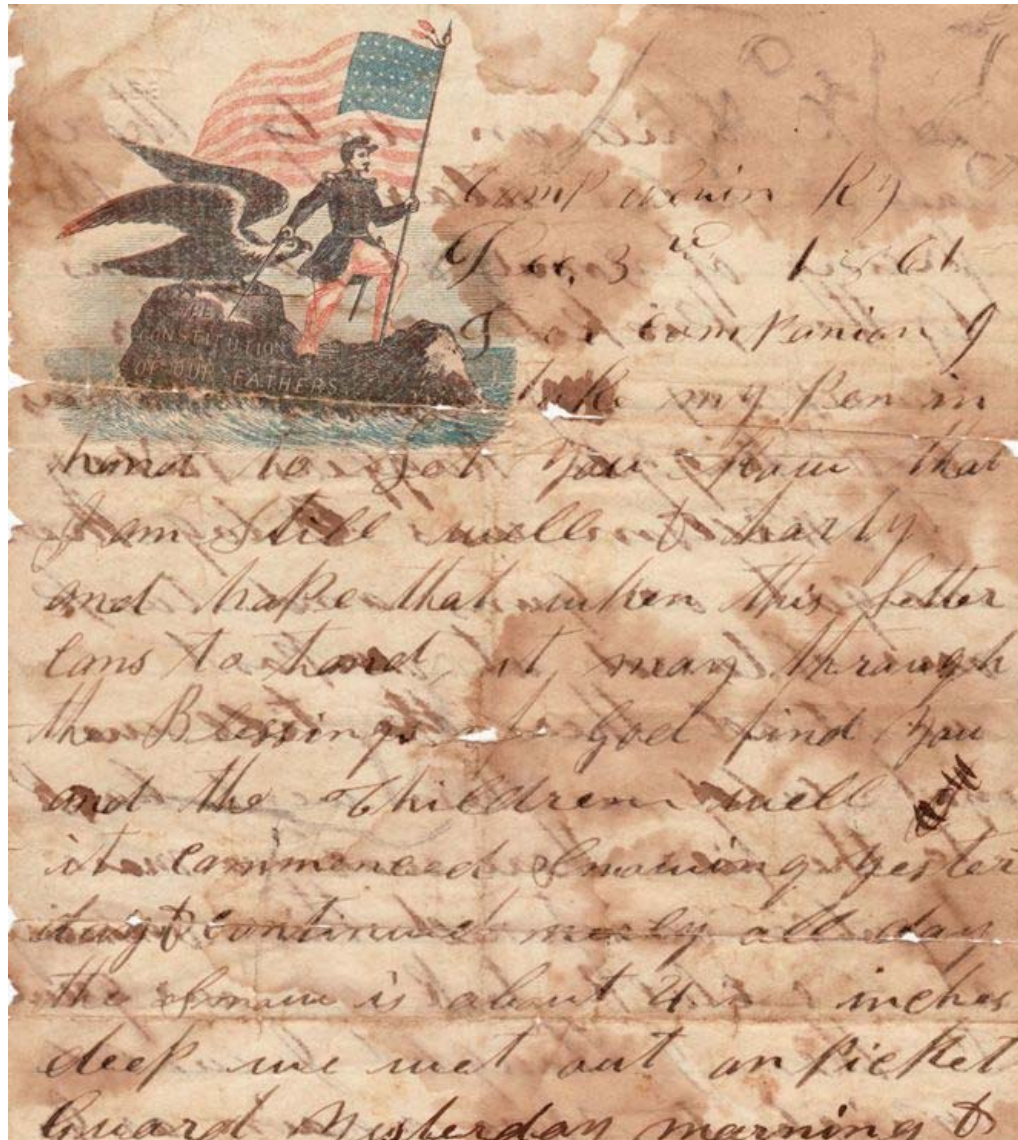 THE
CONSTITUTION
OF OUR FATHERS
Camp Nevin Ky
Dec, 3 1861
companion I
take my Pen in
hand to let you know that
I am Still well & harty
and hope that when this letter
coms to hand it may through
the Blessings of God find you
and the Children well
it commenced Snowing yester
continued all day
the Snow is about 4 inches
deep we wet out on Picket
Guard Yesterday morning &